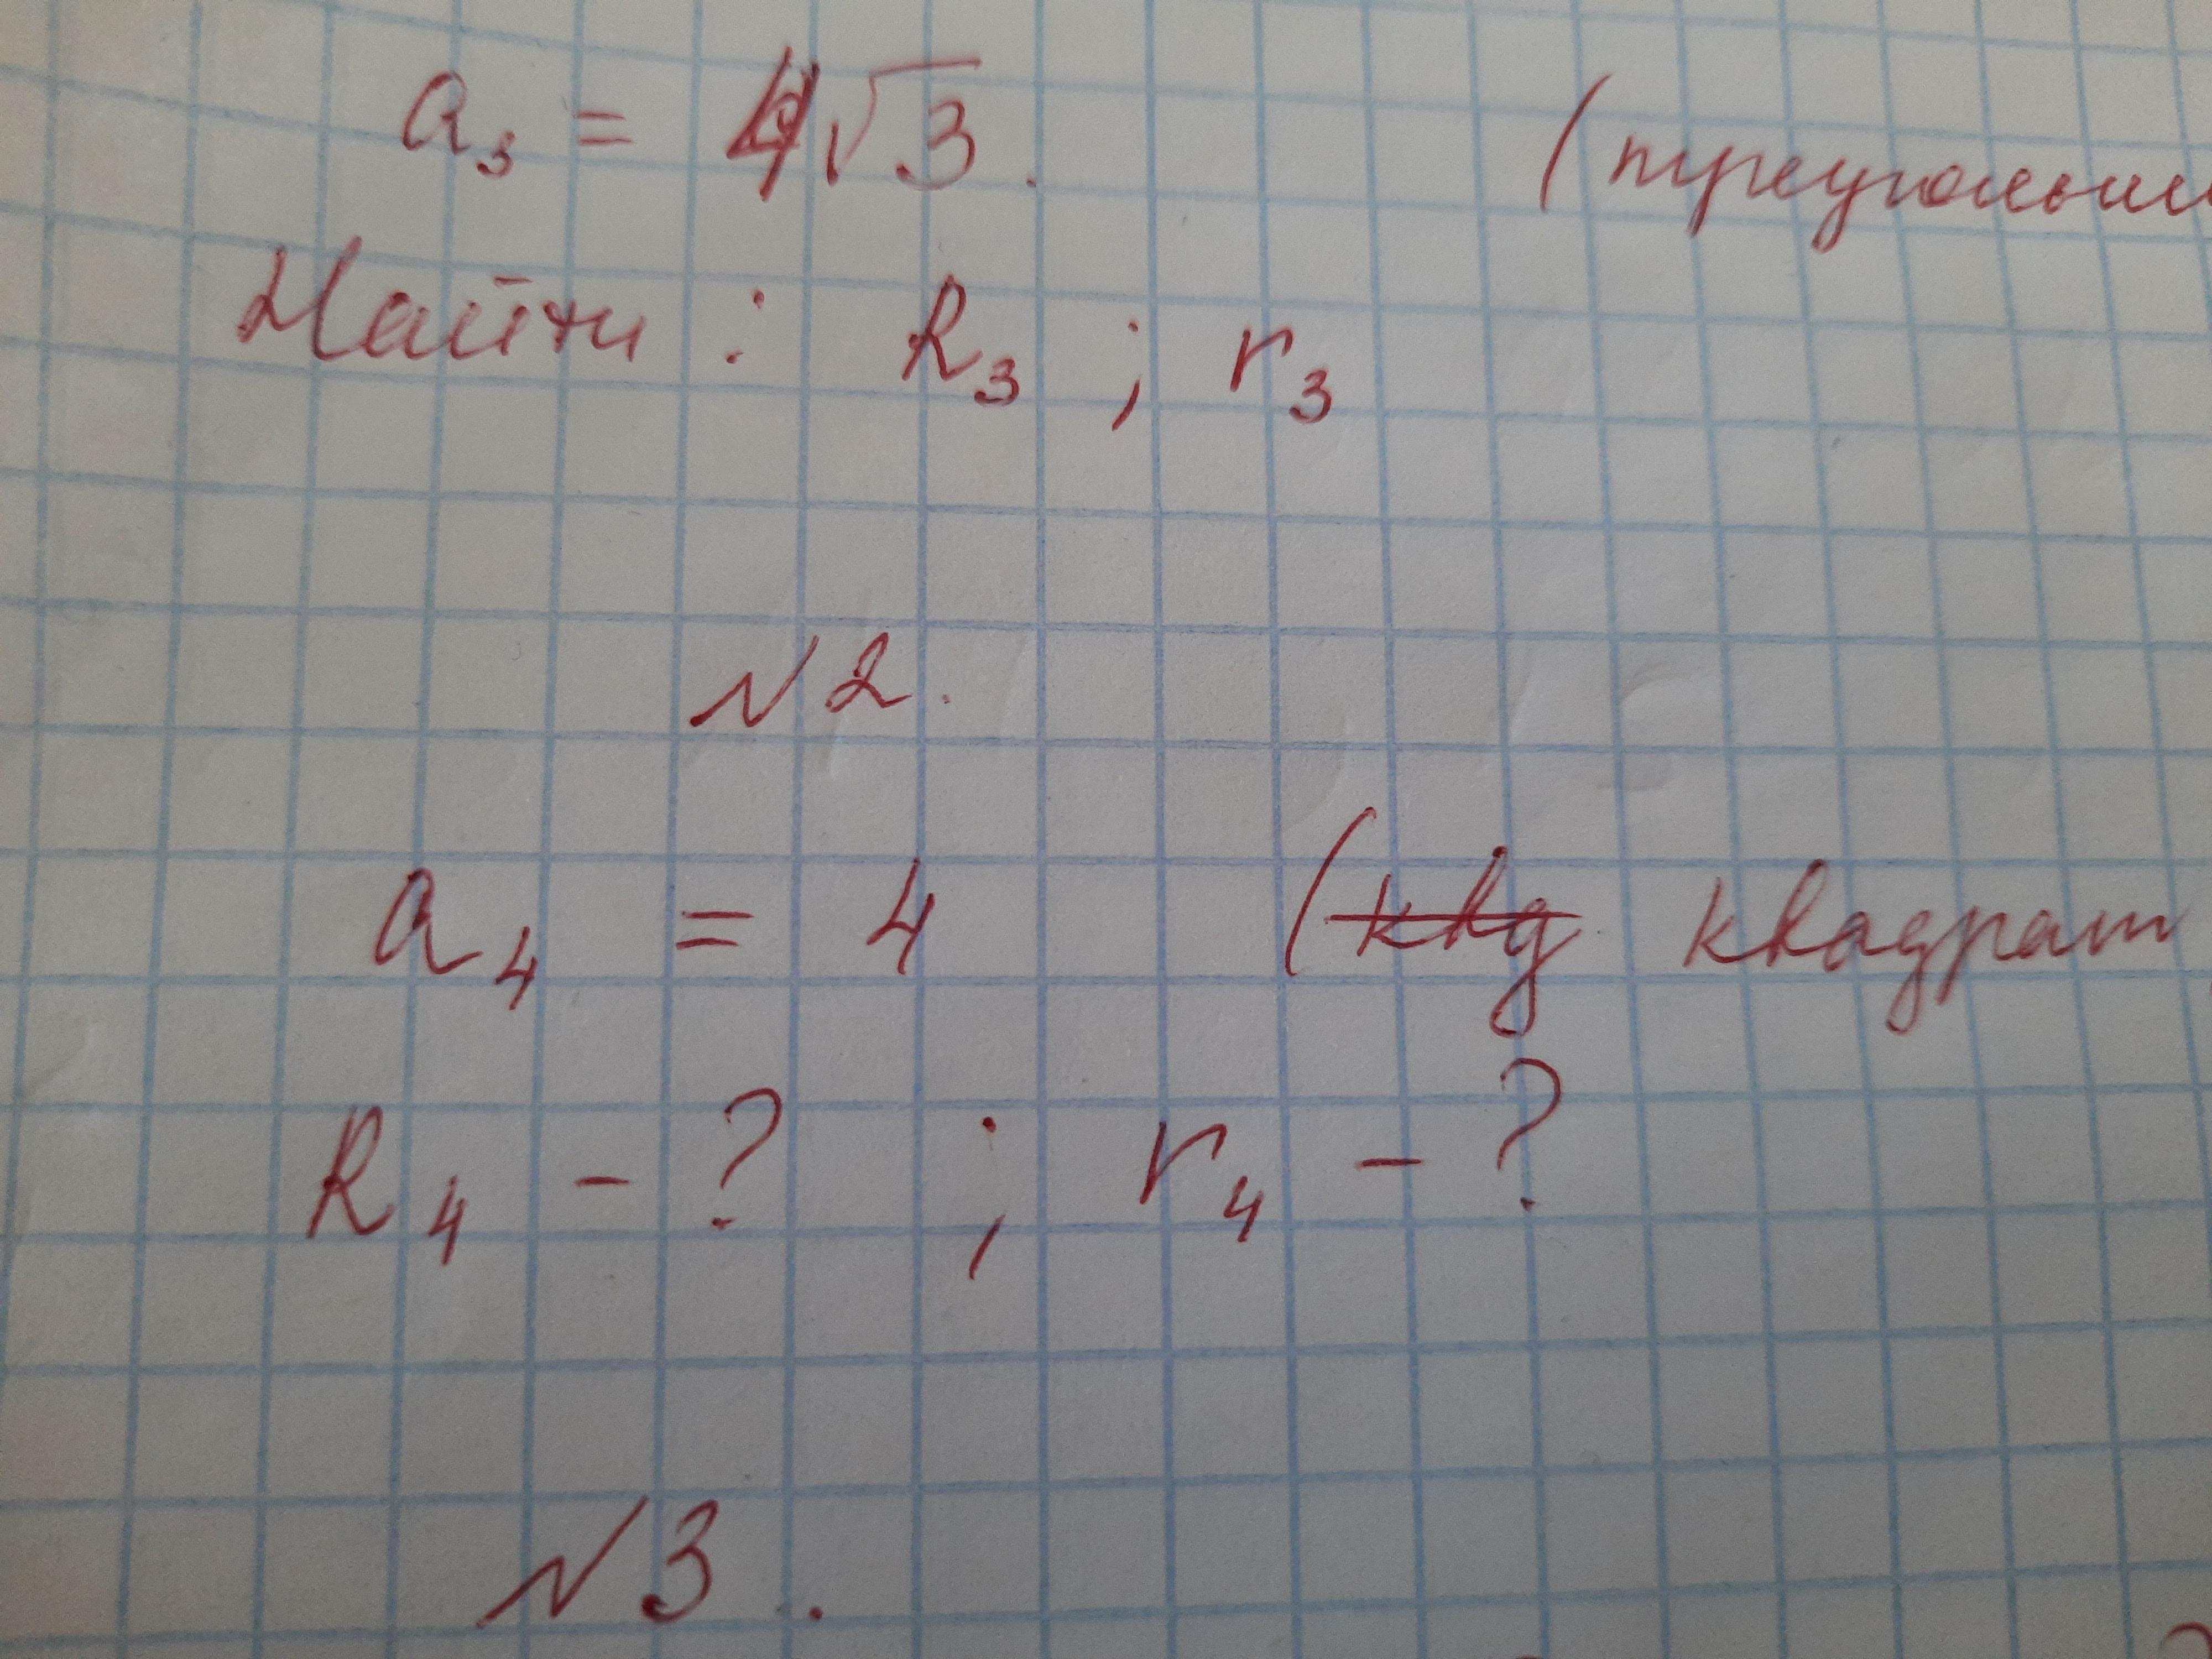 a₃ = 4√3. (треугольни
Найти : R₃ ; r₃
№2.
a₄ = 4 (квд квадрат
R₄ - ? ; r₄ - ?
№3.